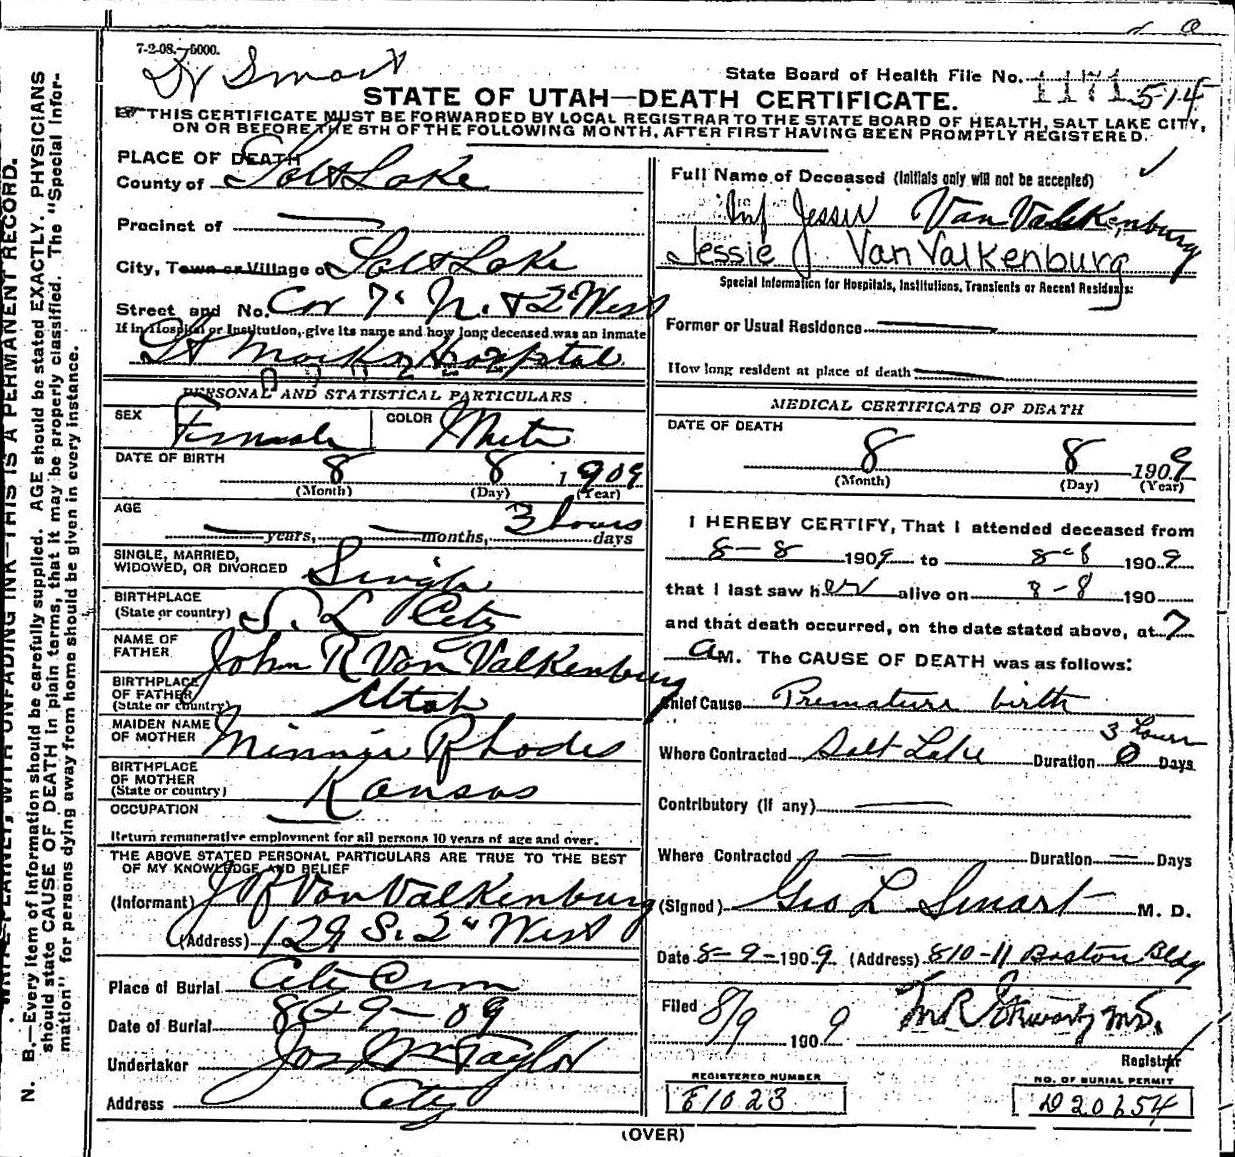 7-2-08.-5000.
Dr Smart
State Board of Health File No. 1171 514
STATE OF UTAH—DEATH CERTIFICATE.
THIS CERTIFICATE MUST BE FORWARDED BY LOCAL REGISTRAR TO THE STATE BOARD OF HEALTH, SALT LAKE CITY,
ON OR BEFORE THE 5TH OF THE FOLLOWING MONTH, AFTER FIRST HAVING BEEN PROMPTLY REGISTERED.
PLACE OF DEATH
County of Salt Lake
Precinct of —
City, Town or Village of Salt Lake
Street and No. Cor 7" N. & 2" West
If in Hospital or Institution, give its name and how long deceased was an inmate
St Marks Hospital
PERSONAL AND STATISTICAL PARTICULARS
SEX Female COLOR White
DATE OF BIRTH 8 8 1909
(Month) (Day) (Year)
AGE 3 hours
— years, — months, days
SINGLE, MARRIED,
WIDOWED, OR DIVORCED Single
BIRTHPLACE
(State or country) S. L City
NAME OF
FATHER John R Van Valkenburg
BIRTHPLACE
OF FATHER
(State or country) Utah
MAIDEN NAME
OF MOTHER Minnie Rhodes
BIRTHPLACE
OF MOTHER
(State or country) Kansas
OCCUPATION —
Return remunerative employment for all persons 10 years of age and over.
THE ABOVE STATED PERSONAL PARTICULARS ARE TRUE TO THE BEST
OF MY KNOWLEDGE AND BELIEF
(Informant) J R Van Valkenburg
(Address) 129 S. 2" West
Place of Burial City Cem
Date of Burial 8-9-09
Undertaker Jos Wm Taylor
Address City
Full Name of Deceased (Initials only will not be accepted)
Inf Jessie Van Valkenburg
Jessie J. Van Valkenburg
Special Information for Hospitals, Institutions, Transients or Recent Residents:
Former or Usual Residence —
How long resident at place of death —
MEDICAL CERTIFICATE OF DEATH
DATE OF DEATH
8 8 1909
(Month) (Day) (Year)
I HEREBY CERTIFY, That I attended deceased from
8-8 1909 to 8-8 1909
that I last saw her alive on 8-8 190
and that death occurred, on the date stated above, at 7
a M. The CAUSE OF DEATH was as follows:
Chief Cause Premature birth
3 hours
Where Contracted Salt Lake Duration 0 Days
Contributory (If any) —
Where Contracted — Duration — Days
(Signed) Geo L Smart M. D.
Date 8-9-1909 (Address) 810-11 Boston Bldg
Filed 8/9 1909 M.D.
Registrar
REGISTERED NUMBER
E1023
NO. OF BURIAL PERMIT
D20654
(OVER)
N. B.—Every item of information should be carefully supplied. AGE should be stated EXACTLY. PHYSICIANS
should state CAUSE OF DEATH in plain terms, that it may be properly classified. The "Special Infor-
mation" for persons dying away from home should be given in every instance.
WRITE PLAINLY, WITH UNFADING INK—THIS IS A PERMANENT RECORD.